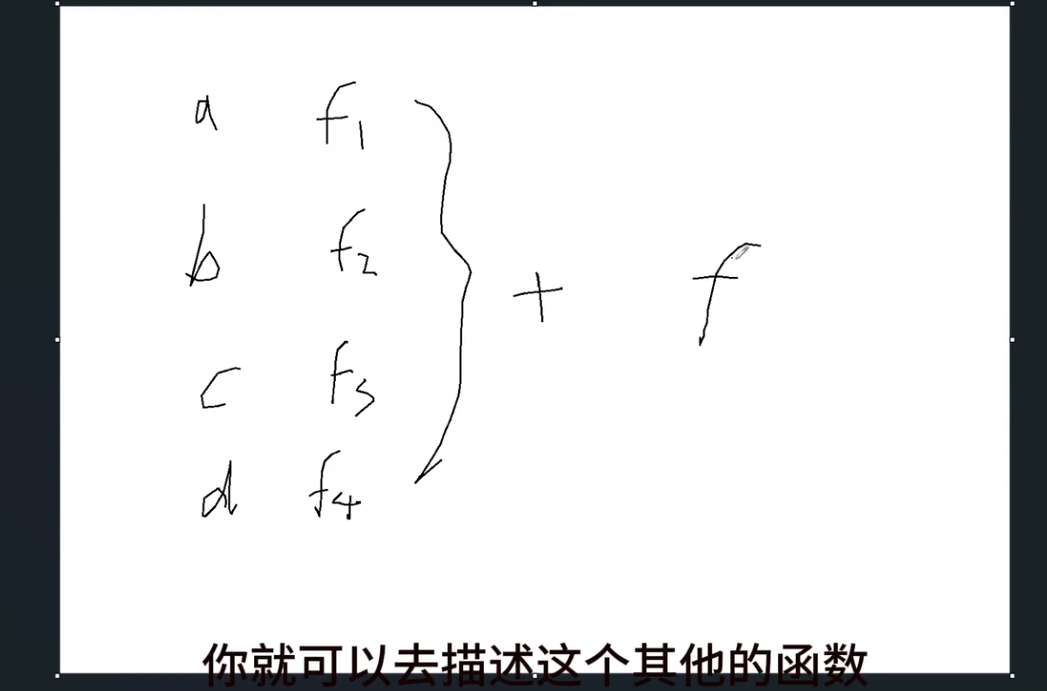 a f1
b f2
+ f
c f3
d f4
你就可以去描述这个其他的函数